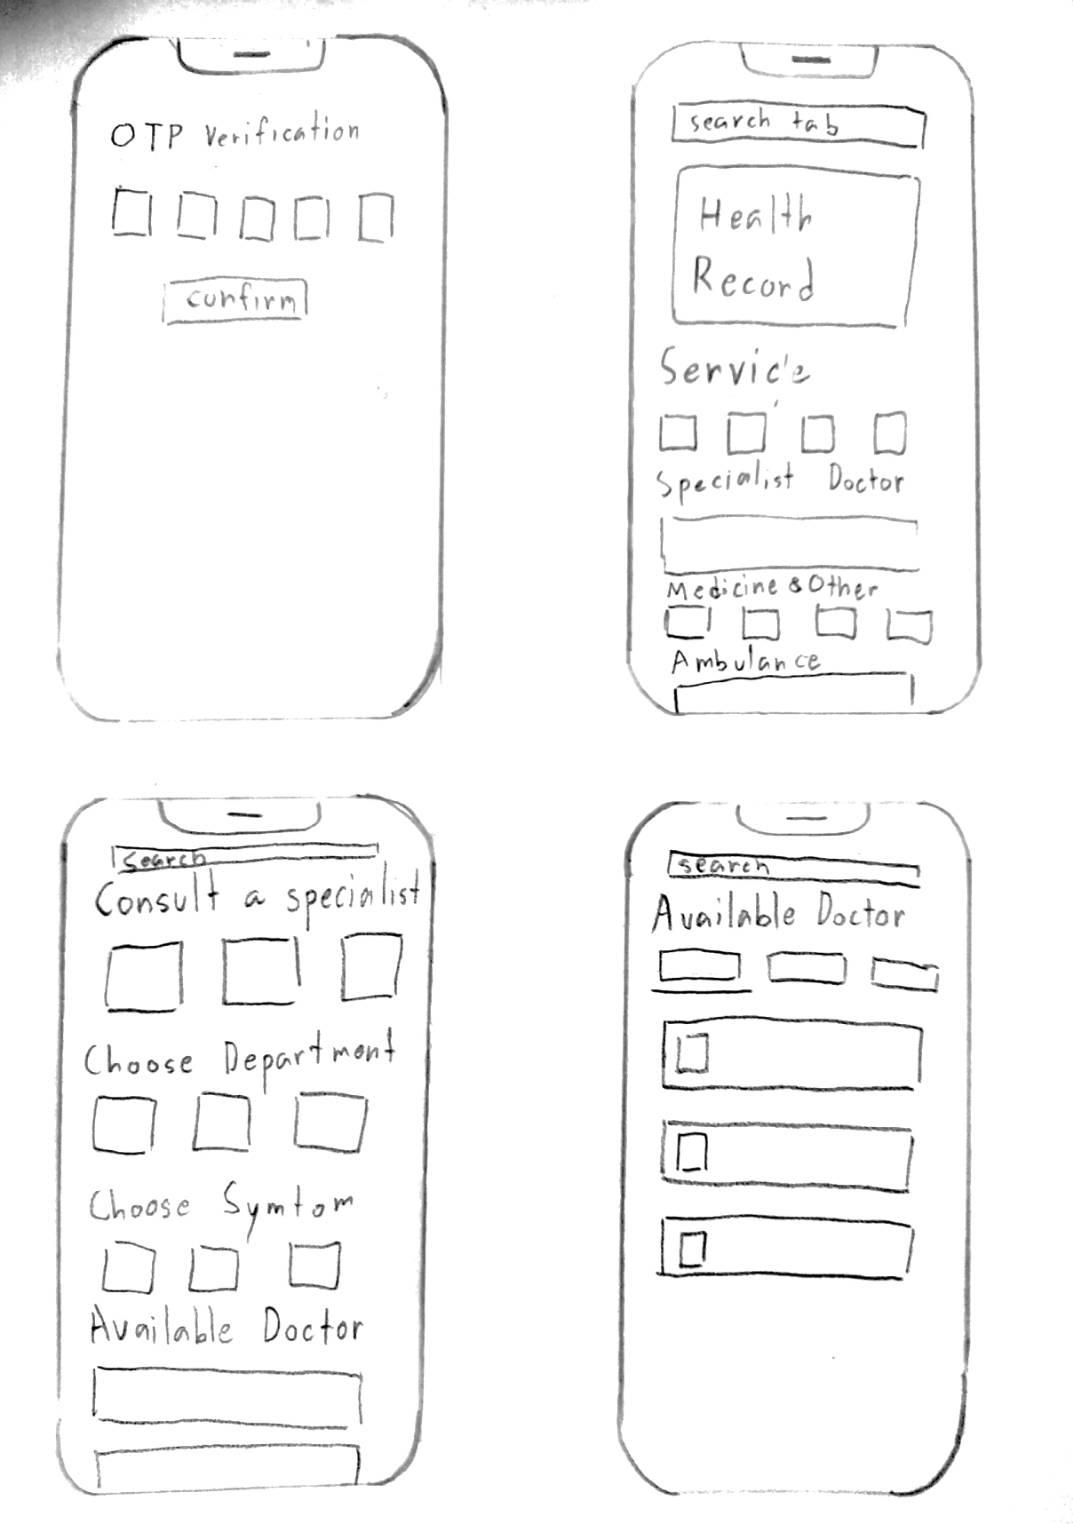 OTP Verification
confirm
search tab
Health
Record
Service
Specialist Doctor
Medicine & Other
Ambulance
search
Consult a specialist
Choose Department
Choose Symtom
Available Doctor
search
Available Doctor